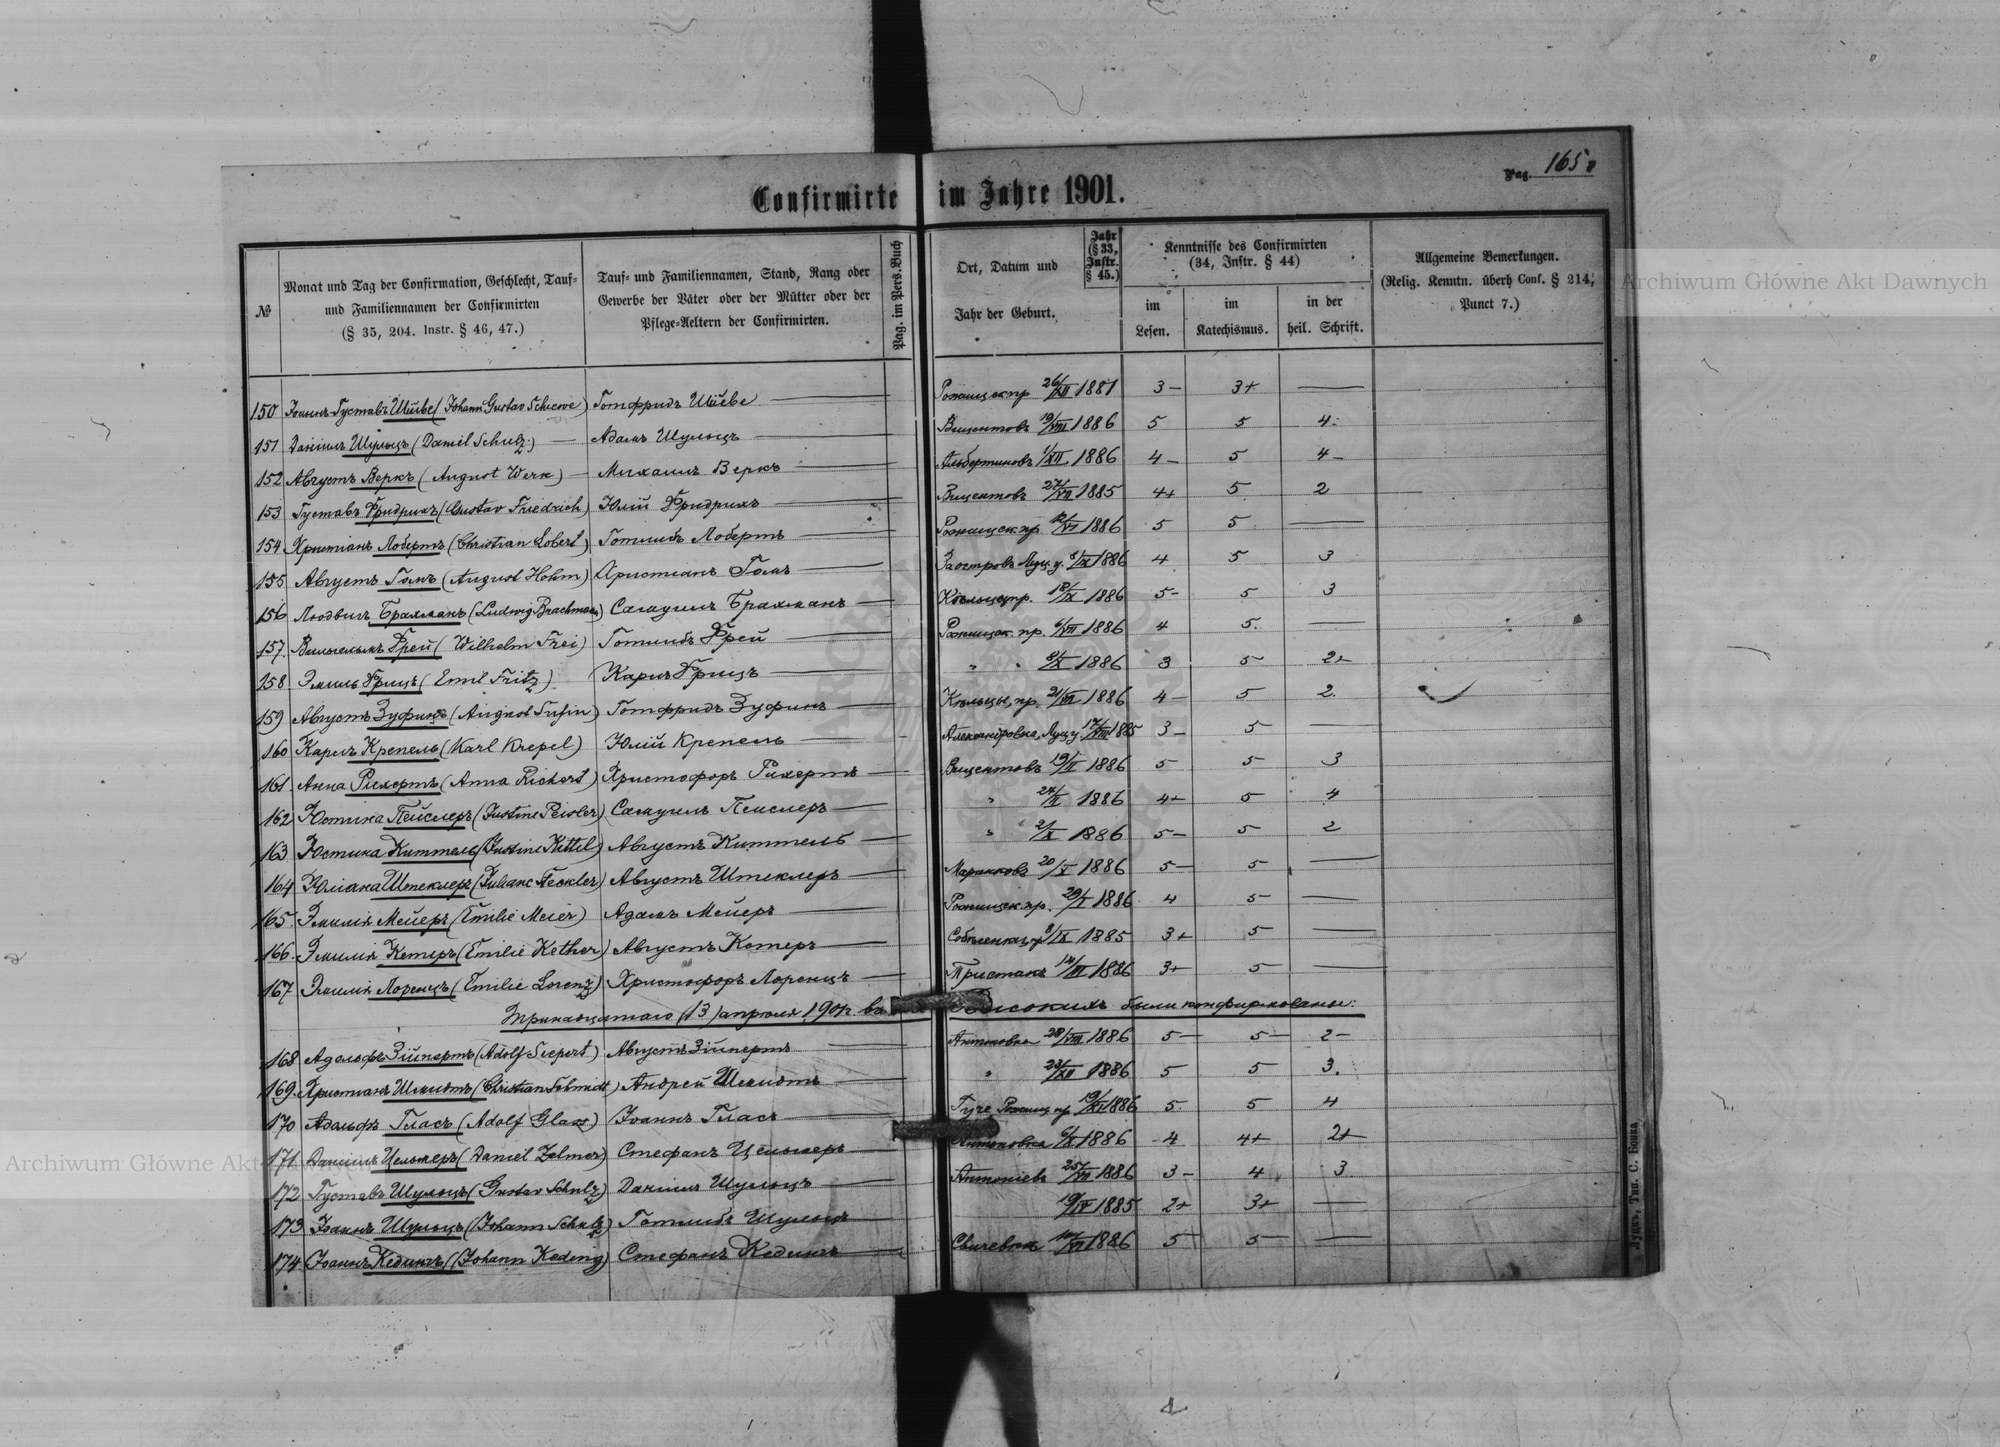 Pag. 165
Confirmirte im Jahre 1901.
№
Monat und Tag der Confirmation, Geschlecht, Tauf- und Familiennamen der Confirmirten (§ 35, 204. Instr. § 46, 47.)
Tauf- und Familiennamen, Stand, Rang oder Gewerbe der Väter oder der Mütter oder der Pflege-Aeltern der Confirmirten.
Pag. im Pers.-Buch
Ort, Datum und Jahr der Geburt.
Jahr (§ 33, Instr. § 45.)
Kenntnisse des Confirmirten (34, Instr. § 44)
im Lesen.
im Katechismus.
in der heil. Schrift.
Allgemeine Bemerkungen. (Relig. Kenntn. überh Conf. § 214, Punct 7.)
150 Іоаннъ Густавъ Шиве (Johann Gustav Schiewe) Готфридъ Шиве Рожищск пр 26/XII 1881 3- 3+ —
151 Даніилъ Шульцъ (Daniel Schulz) Адамъ Шульцъ Вицентовъ 19/VIII 1886 5 5 4-
152 Августъ Веркъ (August Werk) Михаилъ Веркъ Альбертиновъ 1/XII 1886 4- 5 4-
153 Густавъ Фридрихъ (Gustav Friedrich) Юлій Фридрихъ Вицентовъ 1885 4+ 5 2
154 Христіанъ Лобертъ (Christian Lobert) Готлибъ Лобертъ Рожищск. пр. 1886 5 5 —
155 Августъ Гомъ (August Hohm) Христіанъ Гомъ Заостровъ Луц. у. 8/IX 1886 4 5 3
156 Людвигъ Брахманъ (Ludwig Brachmann) Самуилъ Брахманъ 1886 5- 5 3
157. Вильгельмъ Фрей (Wilhelm Frei) Готлибъ Фрей Рожищск. пр. 1886 4 5. —
158 Эмиль Фрицъ (Emil Fritz) Карлъ Фрицъ " " 8/X 1886 3 5 2+
159 Августъ Зуфинъ (August Sufin) Готфридъ Зуфинъ 21/VII 1886 4- 5 2.
160 Карлъ Крепель (Karl Krepel) Юлій Крепель Александровка, Луц. у. 17/VIII 1885 3- 5 —
161. Анна Рихертъ (Anna Richert) Христофоръ Рихертъ Вицентовъ 19/II 1886 5 5 3
162 Юстина Пейслеръ (Justine Peisler) Самуилъ Пейслеръ " 1886 4+ 5 4
163 Юстина Киттель (Justine Kittel) Августъ Киттель " 2/X 1886 5- 5 2
164 Юліана Штеклеръ (Juliane Steckler) Августъ Штеклеръ 20/X 1886 5- 5 —
165. Эмилія Мейеръ (Emilie Meier) Адамъ Мейеръ Рожищск. пр. 29/I 1886 4 5- —
166. Эмилія Кетеръ (Emilie Kether) Августъ Кетеръ 8/IX 1885 3+ 5 —
167 Эмилія Лоренцъ (Emilie Lorenz) Христофоръ Лоренцъ Тристакъ 14/III 1886 3+ 5 —
Тринадцатаго (13) апрѣля 1901 г. были конфирмованы:
168 Адольфъ Зійпертъ (Adolf Siepert) Августъ Зійпертъ Антоновка 28/VIII 1886 5- 5- 2-
169. Христіанъ Шмидтъ (Christian Schmidt) Андрей Шмидтъ " 23/XII 1886 5 5 3.
170 Адольфъ Гласъ (Adolf Glass) Іоаннъ Гласъ Рожищ. пр. 1886 5 5 4
171. Даніилъ Цельмеръ (Daniel Zelmer) Стефанъ Цельмеръ Антоновка 6/X 1886 4 4+ 2+
172 Густавъ Шульцъ (Gustav Schulz) Даніилъ Шульцъ Антоніевъ 25/VII 1886 3- 4 3
173 Іоаннъ Шульцъ (Johann Schulz) Готлибъ Шульцъ 19/IV 1885 2+ 3+ —
174. Іоаннъ Кедингъ (Johann Keding) Стефанъ Кедингъ 1886 5 5 —
Луцкъ, Тип. С. Бонка
Archiwum Główne Akt Dawnych
Archiwum Główne Akt